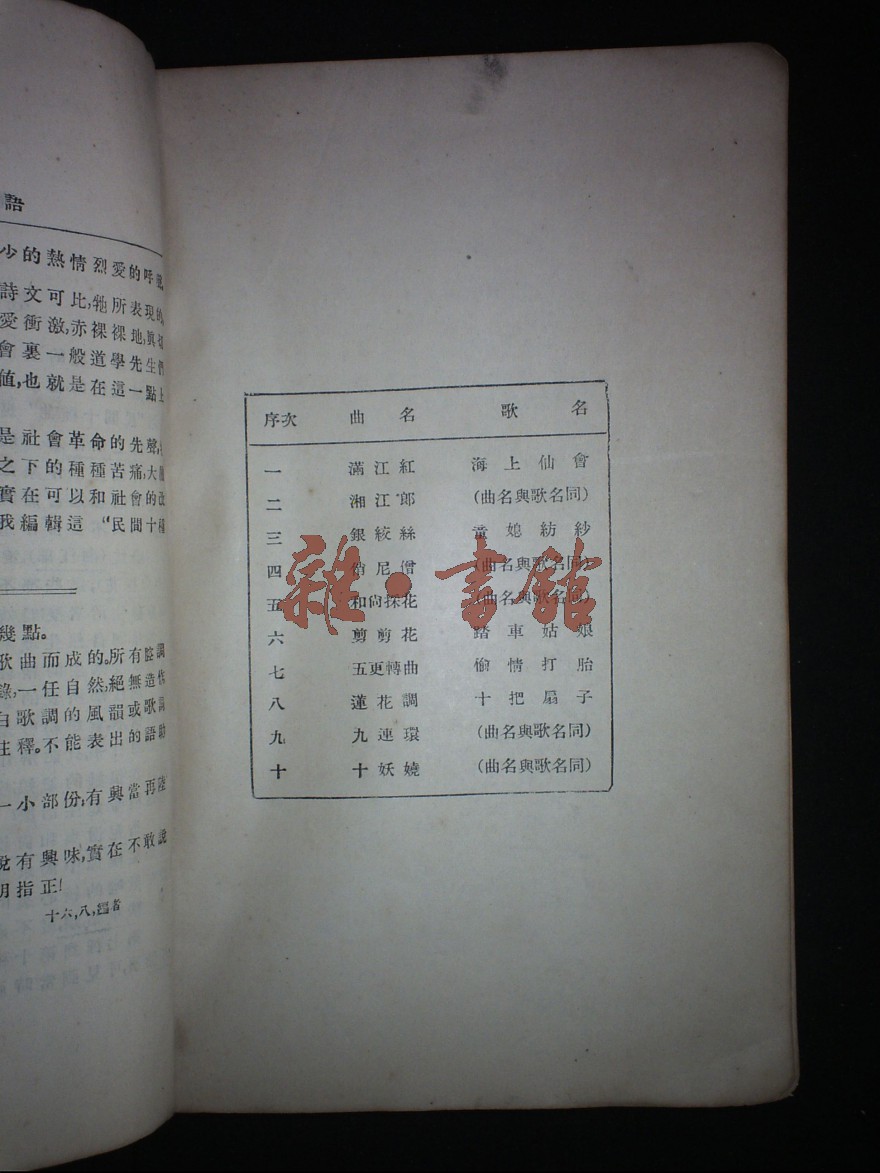 語
少的熱情烈愛的呼
詩文可比,牠所表現的,
愛衝激,赤裸裸地,眞切
會裏一般道學先生們
值,也就是在這一點上
是社會革命的先聲,
之下的種種苦痛,大
實在可以和社會的改
我編輯這“民間十種
幾點。
歌曲而成的。所有腔調
錄,一任自然,絕無造作
白歌調的風韻或歌詞
注釋。不能表出的語助
一小部份,有興當再陸
說有興味,實在不敢說
明指正!
十六,八,編者
序次 曲名 歌名
一 滿江紅 海上仙會
二 湘江郎 (曲名與歌名同)
三 銀絞絲 童媳紡紗
四 尼僧 (曲名與歌名同)
五 和尙探花 (曲名與歌名同)
六 剪剪花 踏車姑娘
七 五更轉曲 偷情打胎
八 蓮花調 十把扇子
九 九連環 (曲名與歌名同)
十 十妖嬈 (曲名與歌名同)
雜·書館